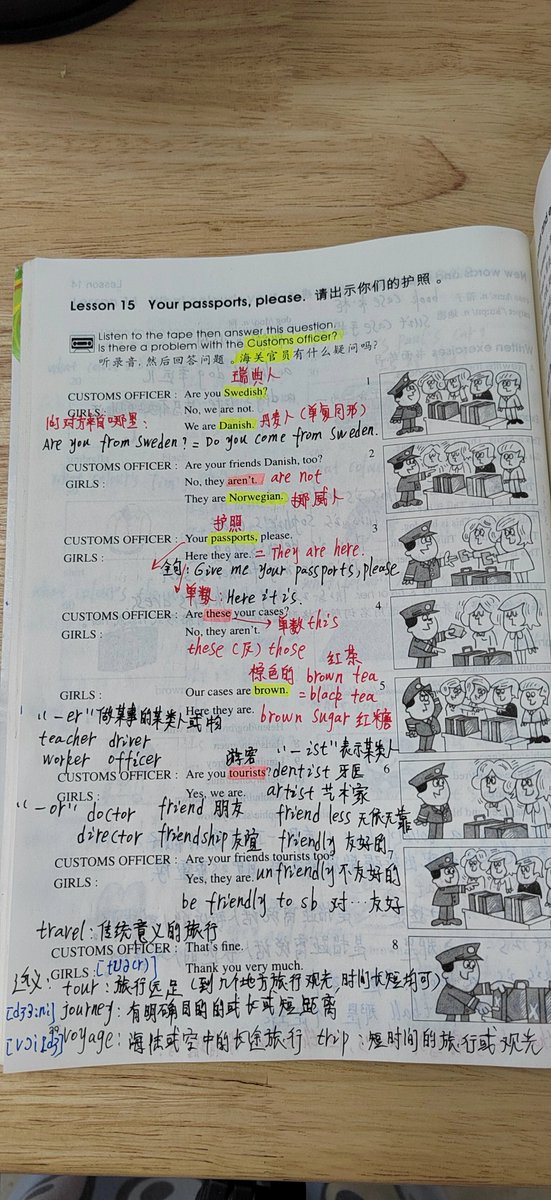 Lesson 15 Your passports, please. 请出示你们的护照。
Listen to the tape then answer this question.
Is there a problem with the Customs officer?
听录音,然后回答问题。海关官员有什么疑问吗?
瑞典人
CUSTOMS OFFICER : Are you Swedish? 1
GIRLS : No, we are not.
问对方来自哪里:
We are Danish. 丹麦人(单复同形)
Are you from Sweden? = Do you come from Sweden.
CUSTOMS OFFICER : Are your friends Danish, too? 2
GIRLS : No, they aren't. are not
They are Norwegian. 挪威人
护照
CUSTOMS OFFICER : Your passports, please. 3
GIRLS : Here they are. = They are here.
全句: Give me your passports, please
单数: Here it is.
CUSTOMS OFFICER : Are these your cases? 4
GIRLS : No, they aren't. 单数 this
these (反) those 红茶
棕色的 brown tea
GIRLS : Our cases are brown. = black tea 5
Here they are. brown sugar 红糖
"-er" 做某事的某类人或物
teacher driver
worker officer 游客 "-ist" 表示某类人
CUSTOMS OFFICER : Are you tourists? dentist 牙医 6
GIRLS : Yes, we are. artist 艺术家
"-or" doctor friend 朋友 friendless 无依无靠
director friendship 友谊 friendly 友好的
CUSTOMS OFFICER : Are your friends tourists too? 7
GIRLS : Yes, they are. unfriendly 不友好的
be friendly to sb 对…友好
travel: 传统意义的旅行
CUSTOMS OFFICER : That's fine. 8
GIRLS : Thank you very much.
近义: tour: 旅行远足 (到几个地方旅行观光,时间长短均可)
journey: 有明确目的的或长或短距离
voyage: 海陆或空中的长途旅行 trip: 短时间的旅行或观光